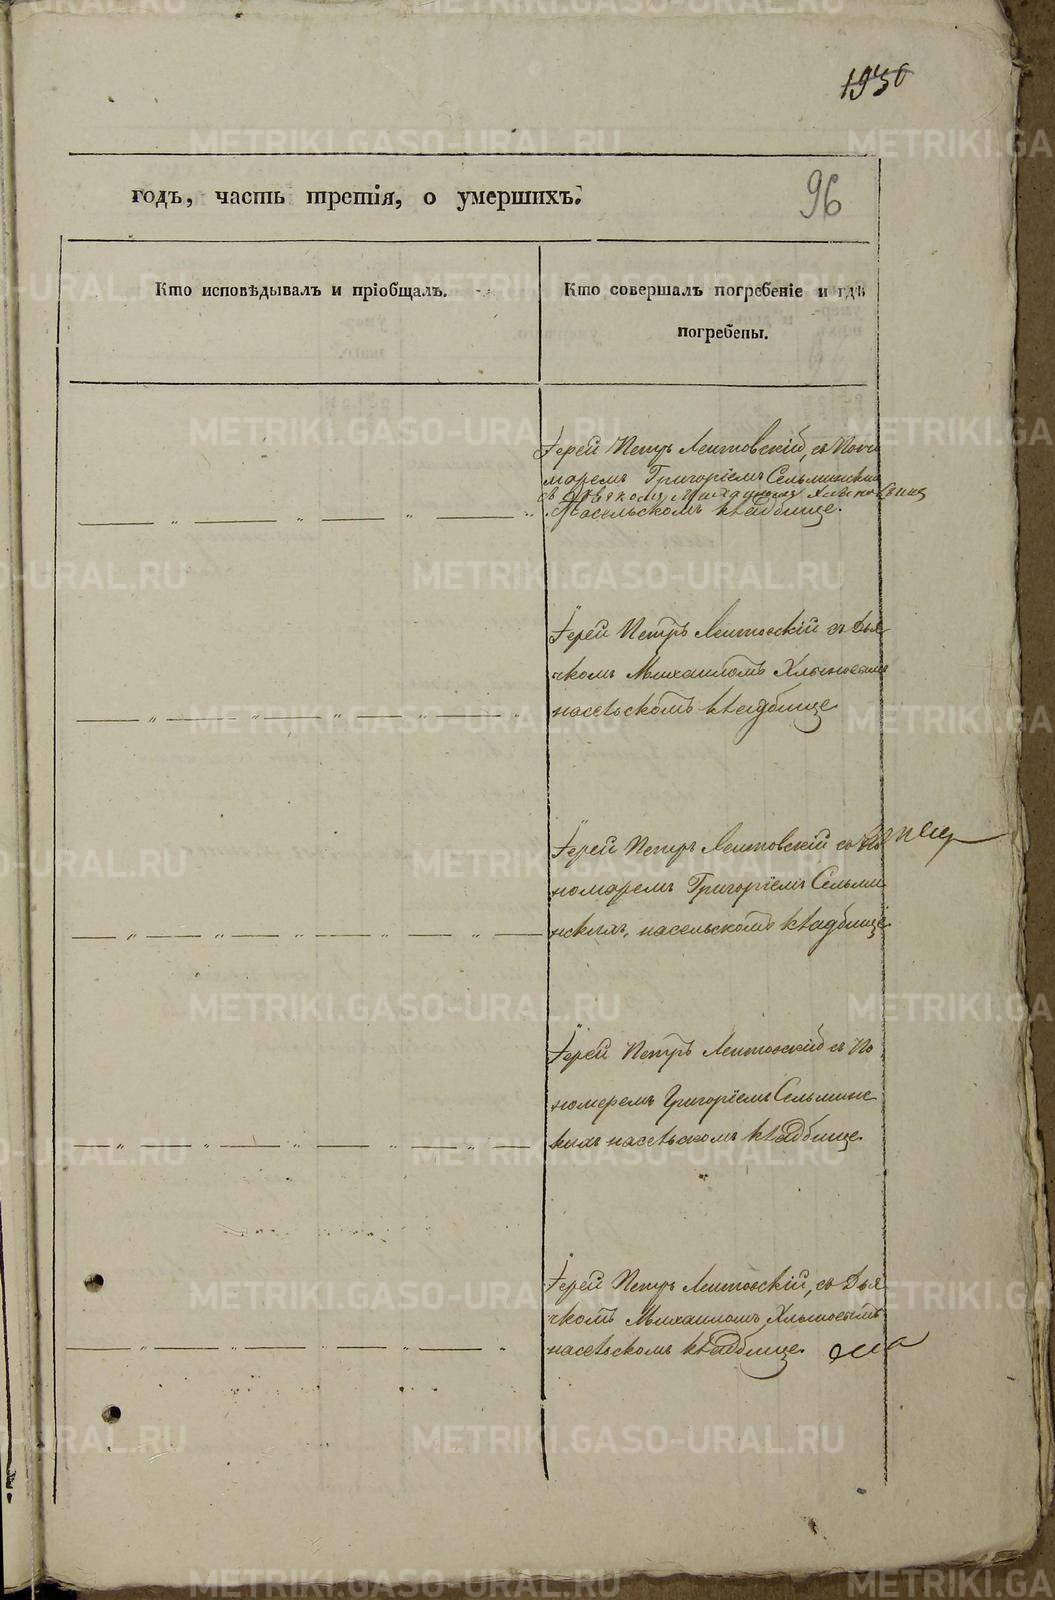 96
годъ, часть третія, о умершихъ.
Кто исповѣдывалъ и пріобщалъ.
Кто совершалъ погребеніе и гдѣ
погребены.
Іерей Петръ Лентовскій, съ Поно
маремъ Григоріемъ Сельминскимъ
съ Дьячкомъ Михаиломъ
Насельскомъ кладбище.
Іерей Петръ Лентовскій съ Дья
чкомъ Михаиломъ Хлыновымъ
насельскомъ кладбище
Іерей Петръ Лентовскій съ По
номаремъ Григоріемъ Сельми
нскимъ, насельскомъ кладбище
Іерей Петръ Лентовскій съ По
номеремъ Григоріемъ Сельминс
кимъ насельскомъ кладбище
Іерей Петръ Лентовскій, съ Дья
чкомъ Михаиломъ Хлыновымъ
насельскомъ кладбище.
METRIKI.GASO-URAL.RU